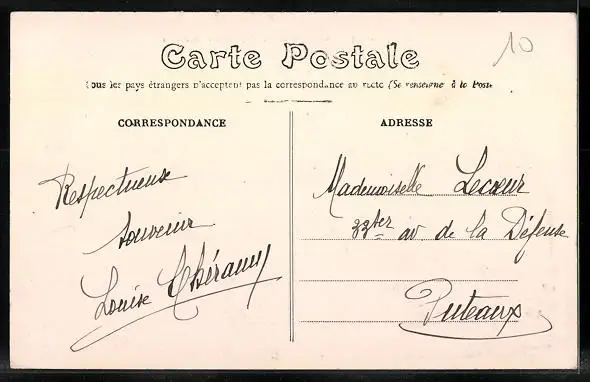 10
Carte Postale
Tous les pays étrangers n'acceptent pas la correspondance au recto (Se renseigner à la Poste
CORRESPONDANCE
Respectueux
souvenir
Louise
ADRESSE
Mademoiselle Lecœur
33ter av. de la Défense
Puteaux